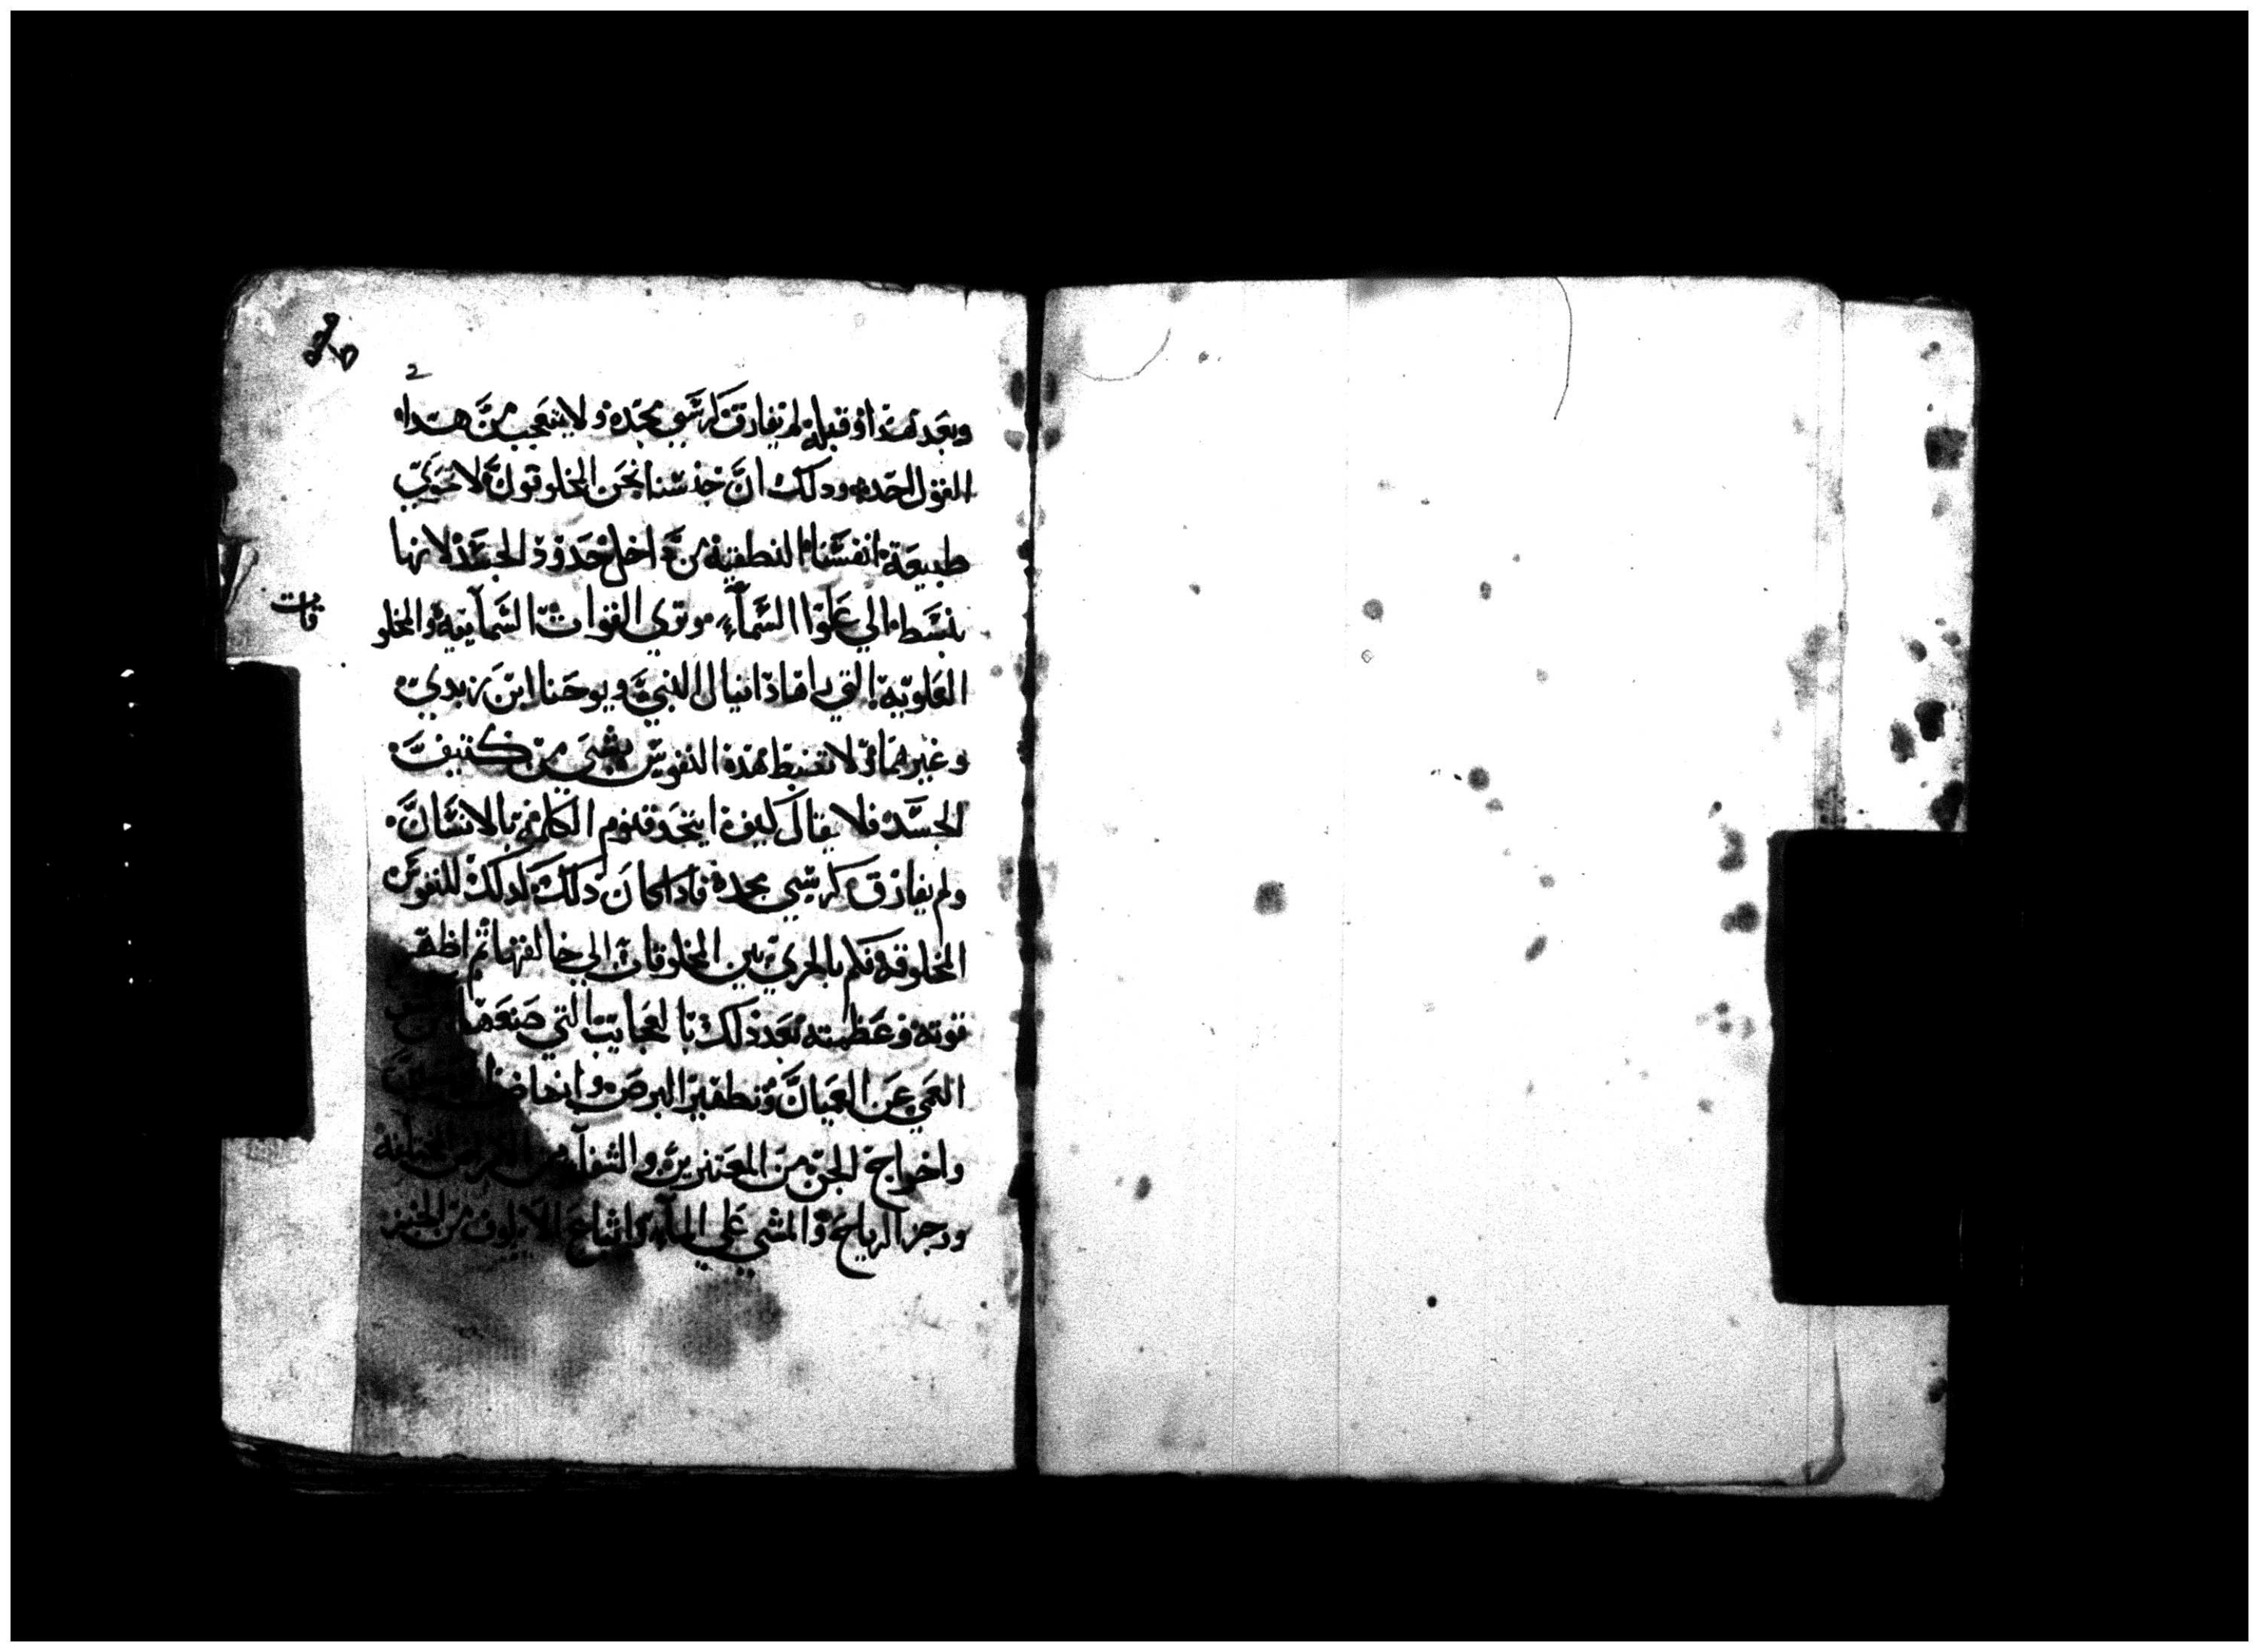 2
وبعد هذا او قبله لم يفارق كرسي مجده ولا يتعجب من هدا
القول احد ودلك ان جنسنا نحن المخلوقون لا تحوي
طبيعة انفسنا النطقية من داخل حدود الجسد لانها
تبسط الي علوا السمآء وتري القوات السمآيية والمخلو
قات
العلوية التي راها دانيال النبي ويوحنا ابن زبدي
وغيرهما ولا تضبط هذه النفوس بشي من كثيف
الجسد فلا يقال كيف اتحد قنوم الكلمة بالانسان
ولم يفارق كرسي مجده فاداكان دلك كدلك للنفوس
المخلوقة فكم بالحري بين المخلوقات الي خالقها ثم اظهر
قوته وعظمته بعد ذلك بالعجايب التي صنعها
العمي عن العميان وتطهير البرص وانهاض
واخراج الجن من المعترين والشفآ من الامراض المختلفة
وزجر الرياح والمشي علي المآء واشباع الالوف من الخبز